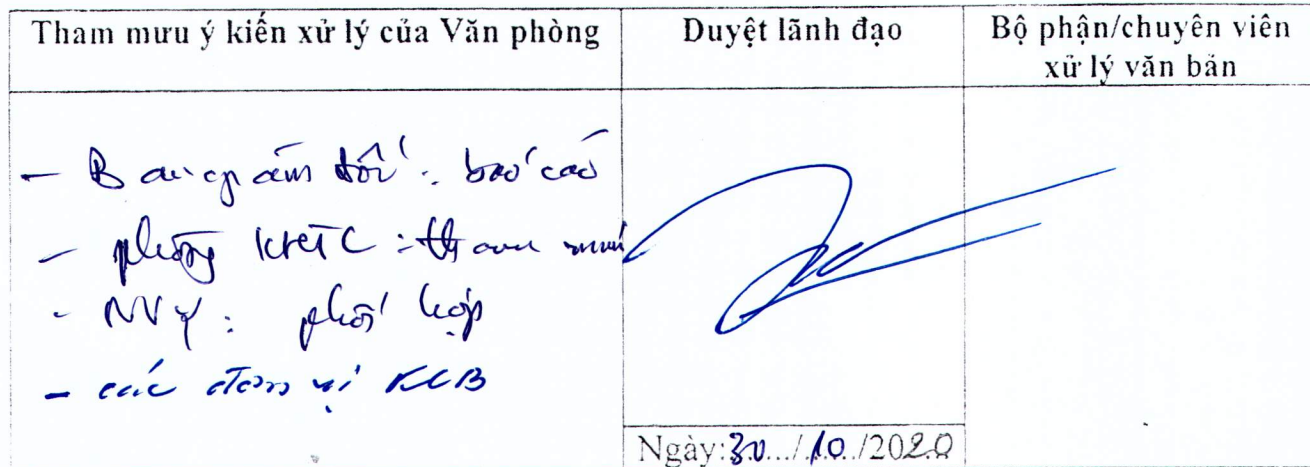 Tham mưu ý kiến xử lý của Văn phòng
Duyệt lãnh đạo
Bộ phận/chuyên viên
xử lý văn bản
- Ban giám đốc: báo cáo
- phòng KHTC: tham mưu
- NVY: phối hợp
- các đơn vị KCB
Ngày: 30.../.10../2020